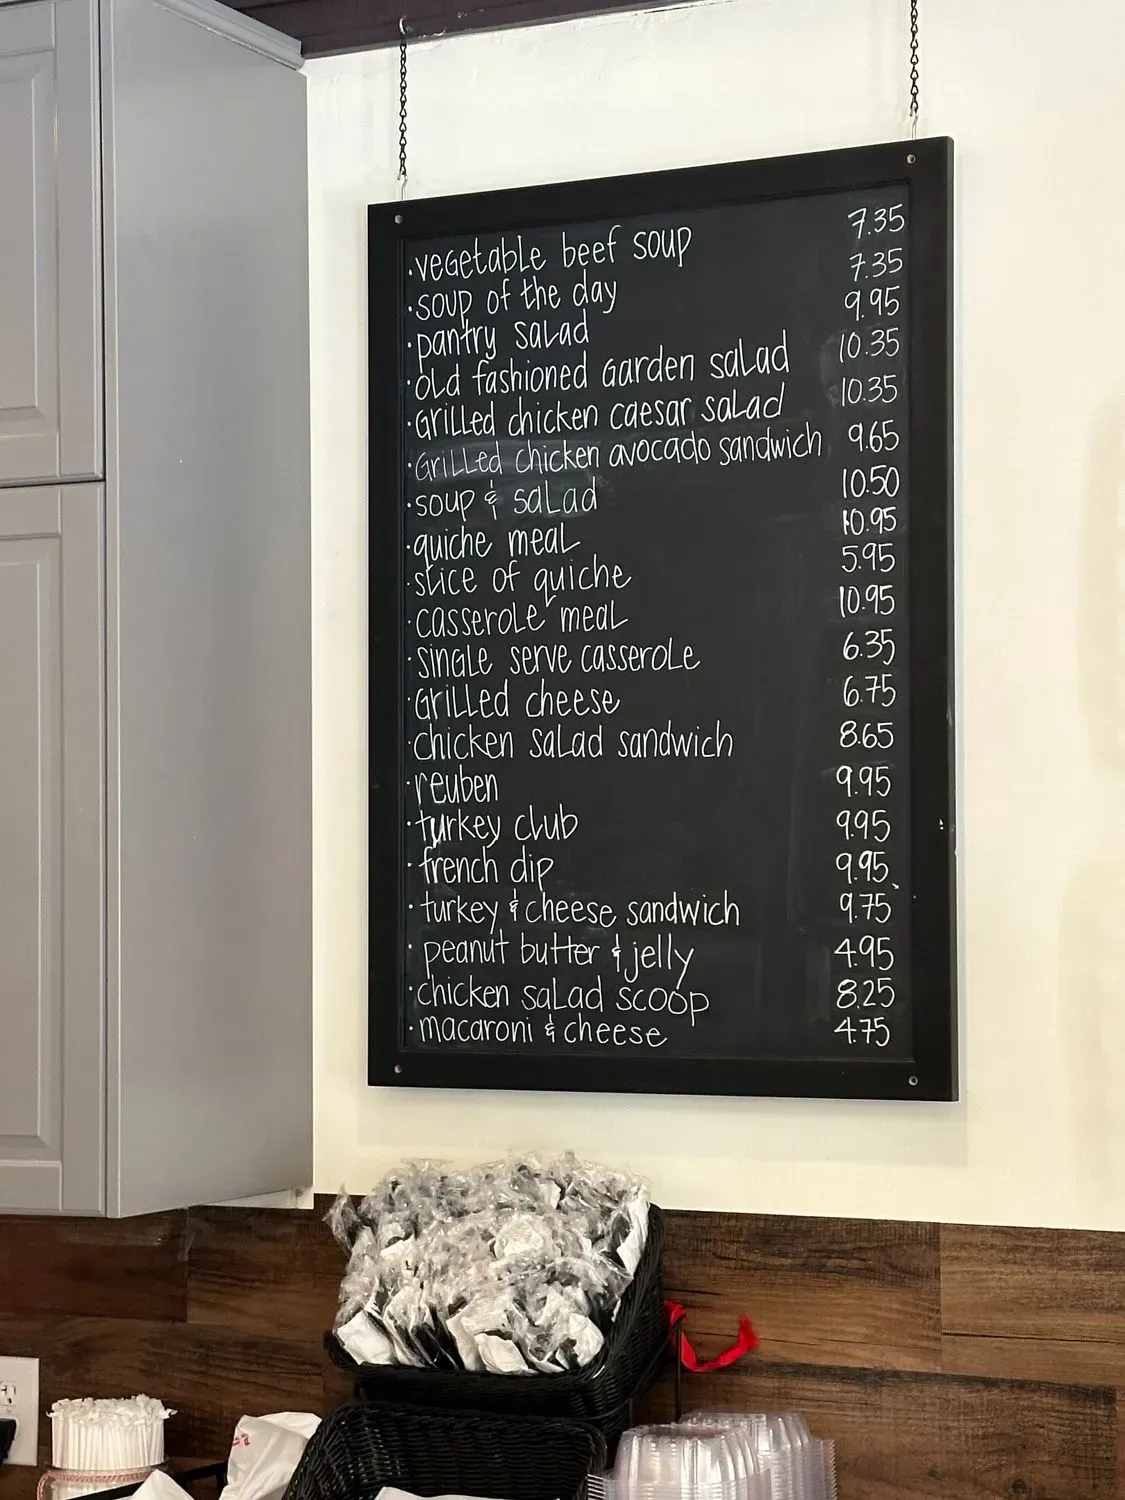 ·vegetable beef soup 7.35
·soup of the day 7.35
·pantry salad 9.95
·old fashioned Garden salad 10.35
·Grilled chicken caesar salad 10.35
·Grilled chicken avocado sandwich 9.65
·soup & salad 10.50
·quiche meal 10.95
·slice of quiche 5.95
·casserole meal 10.95
·single serve casserole 6.35
·Grilled cheese 6.75
·chicken salad sandwich 8.65
·reuben 9.95
·turkey club 9.95
·french dip 9.95
·turkey & cheese sandwich 9.75
·peanut butter & jelly 4.95
·chicken salad scoop 8.25
·macaroni & cheese 4.75